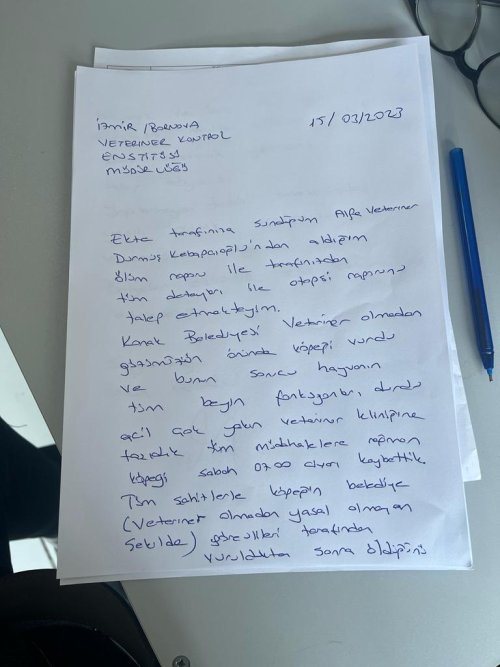 İzmir / BORNOVA
15/03/2023
VETERİNER KONTROL
ENSTİTÜSÜ
MÜDÜRLÜĞÜ
Ekte tarafınıza sunduğum Alfa Veteriner
Durmuş Kebapcıoğlu'ndan aldığım
ölüm raporu ile tarafınızdan
tüm detayları ile otopsi raporunu
talep etmekteyim.
Konak Belediyesi Veteriner olmadan
gözümüzün önünde köpeği vurdu
ve bunun sonucu hayvanın
tüm beyin fonksiyonları durdu
acil çok yakın veteriner kliniğine
taşıdık tüm müdahalelere rağmen
köpeği sabah 07.00 civarı kaybettik.
Tüm şahitlerle köpeğin belediye
(Veteriner olmadan yasal olmayan
şekilde) görevlileri tarafından
vurulduktan sonra öldüğünü